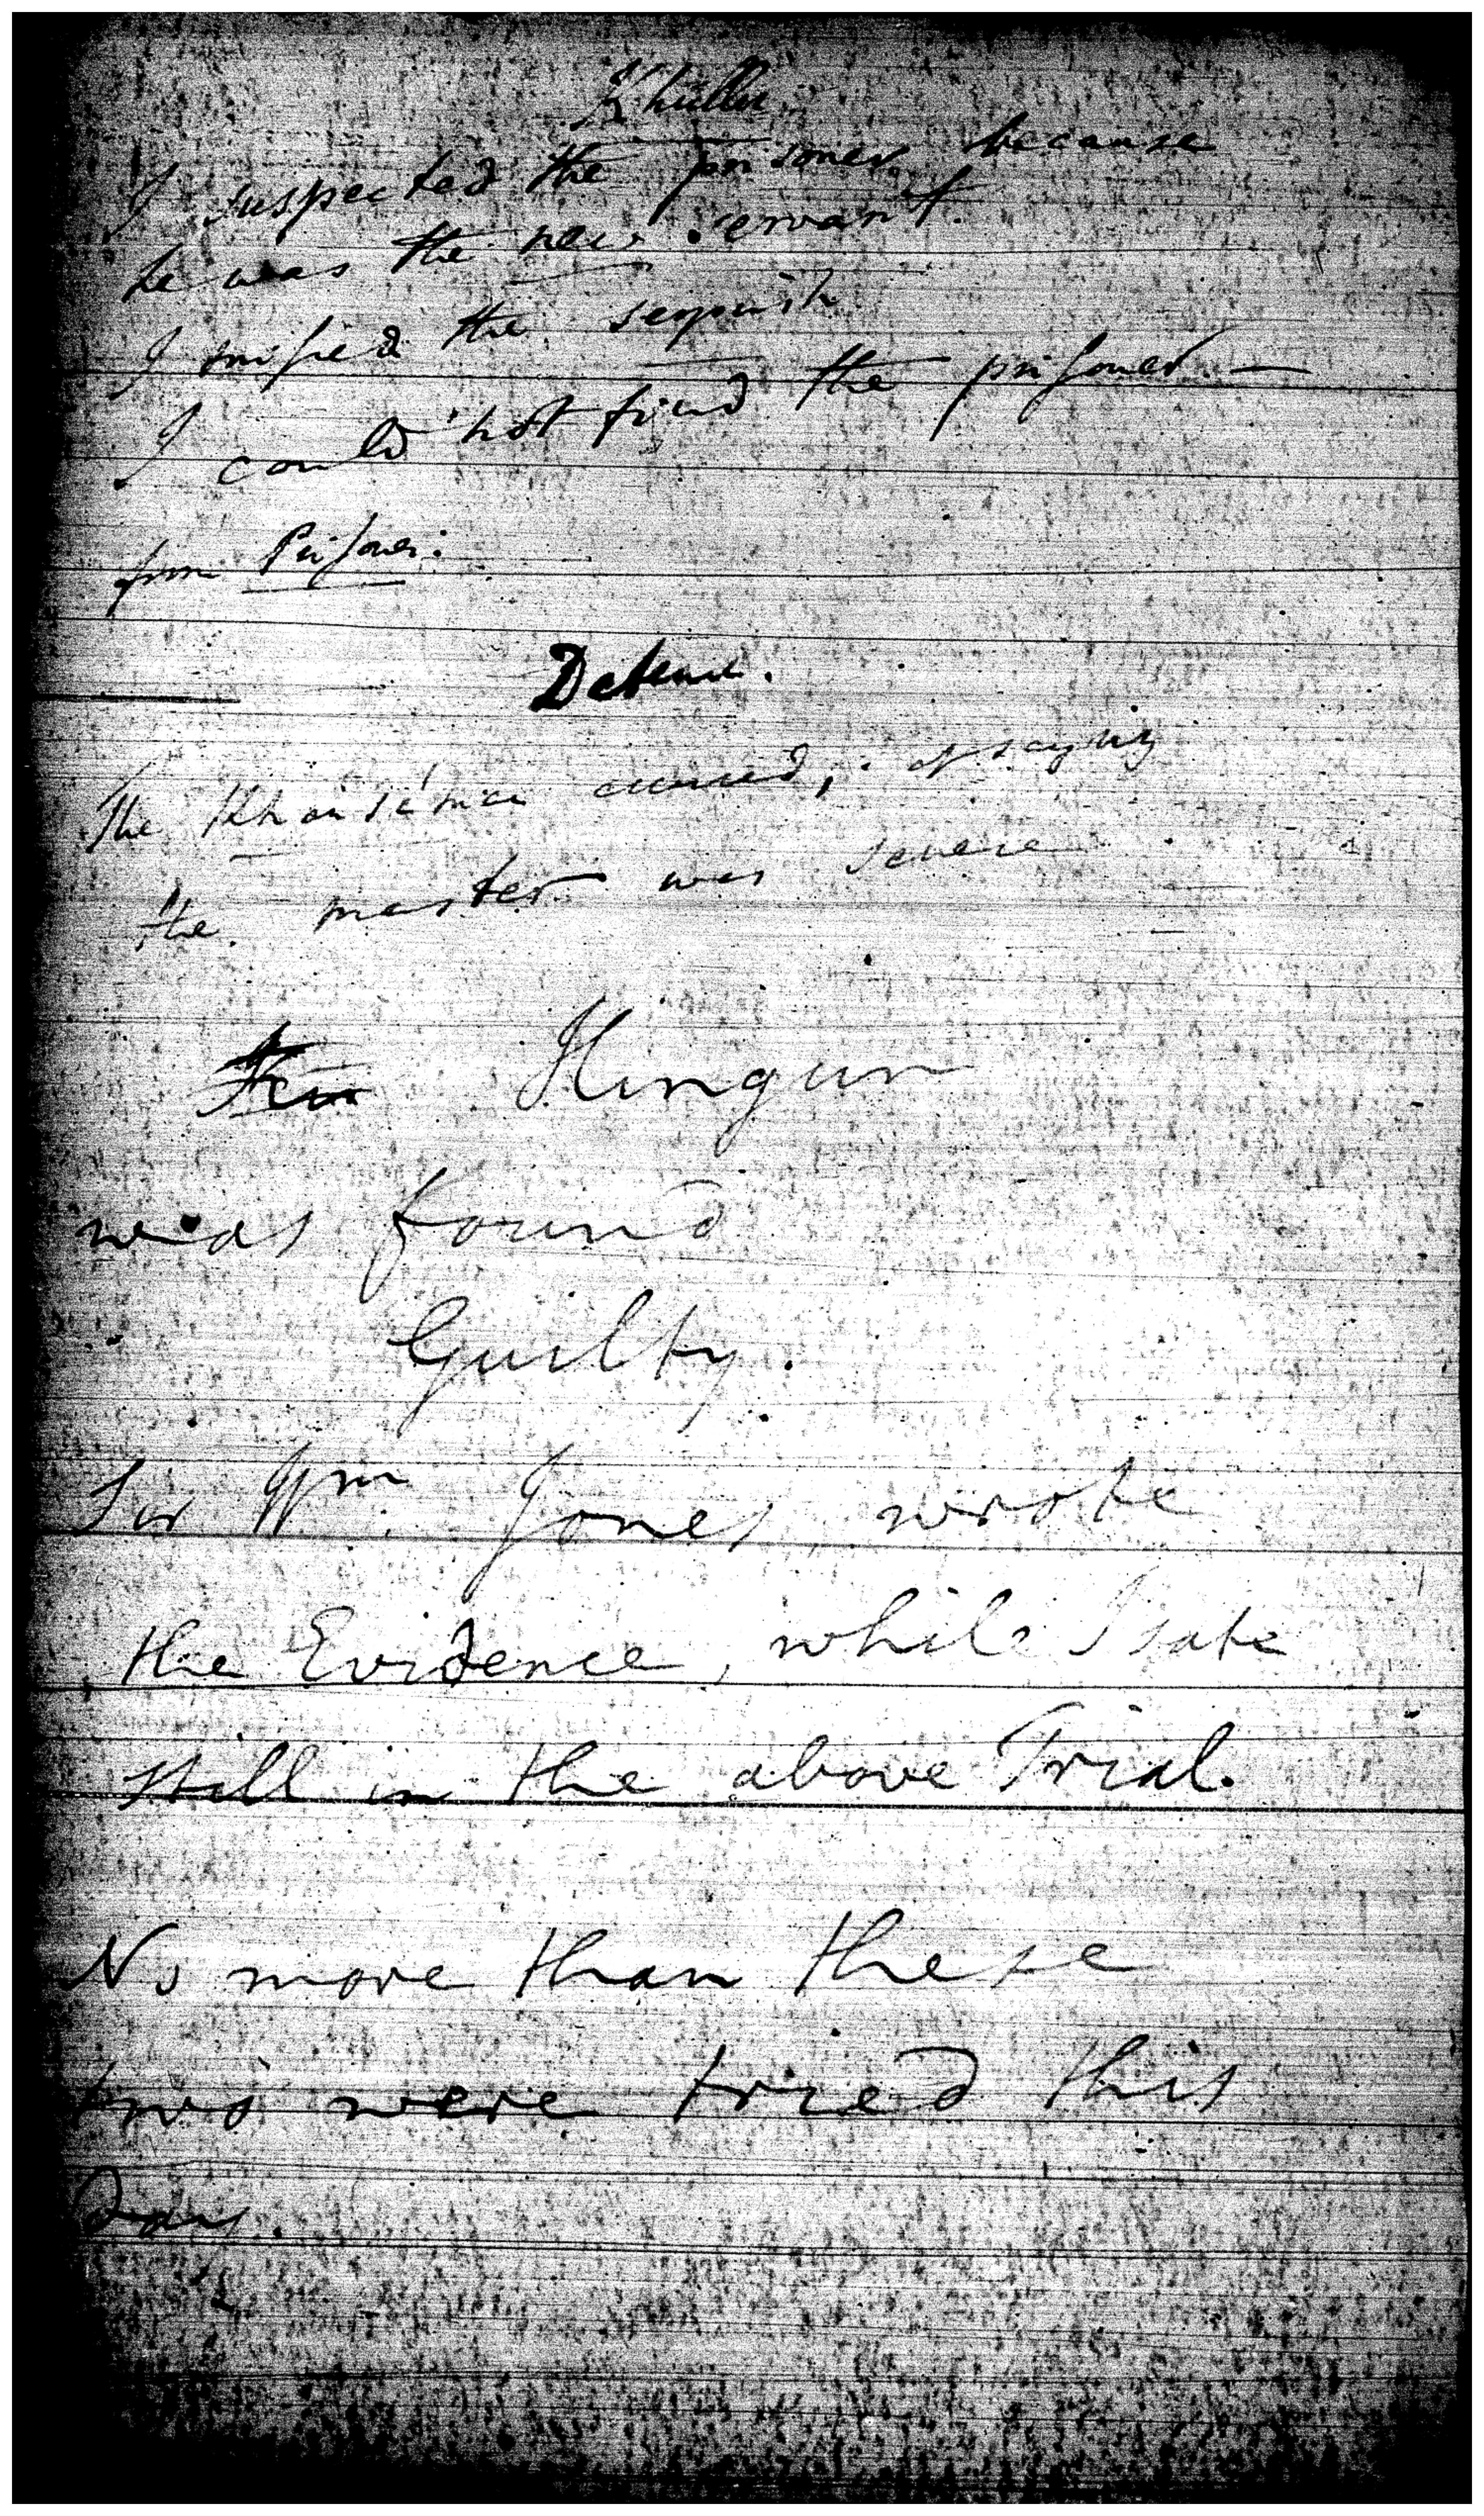 Khullu
I suspected the prisoner because
he was the new servant.
I missed the serpish
I could not find the prisoner —
from Prisoner.
Defence.
The Khansama accused, of saying
the master was severe
Hingun
was found
Guilty.
Sir Wm. Jones wrote
the Evidence, while I sate
still in the above Trial.
No more than these
two were tried this
Day.